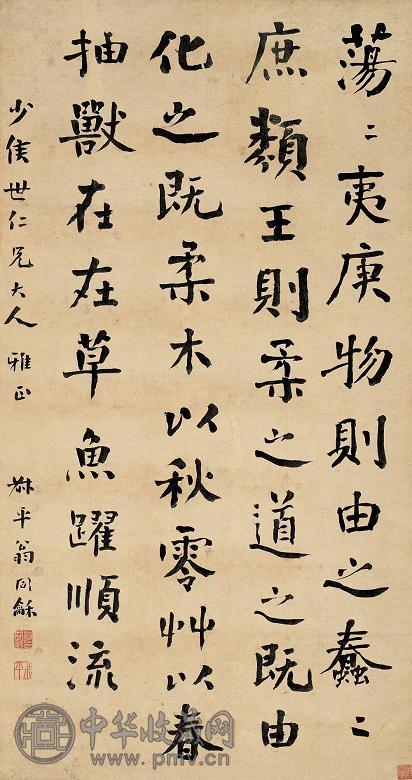 蕩〻夷庚物則由之蠢〻
庶類王則柔之道之既由
化之既柔木以秋零艸以春
抽獸在在草魚躍順流
少侯世仁兄大人雅正 叔平翁同龢
中华收藏网